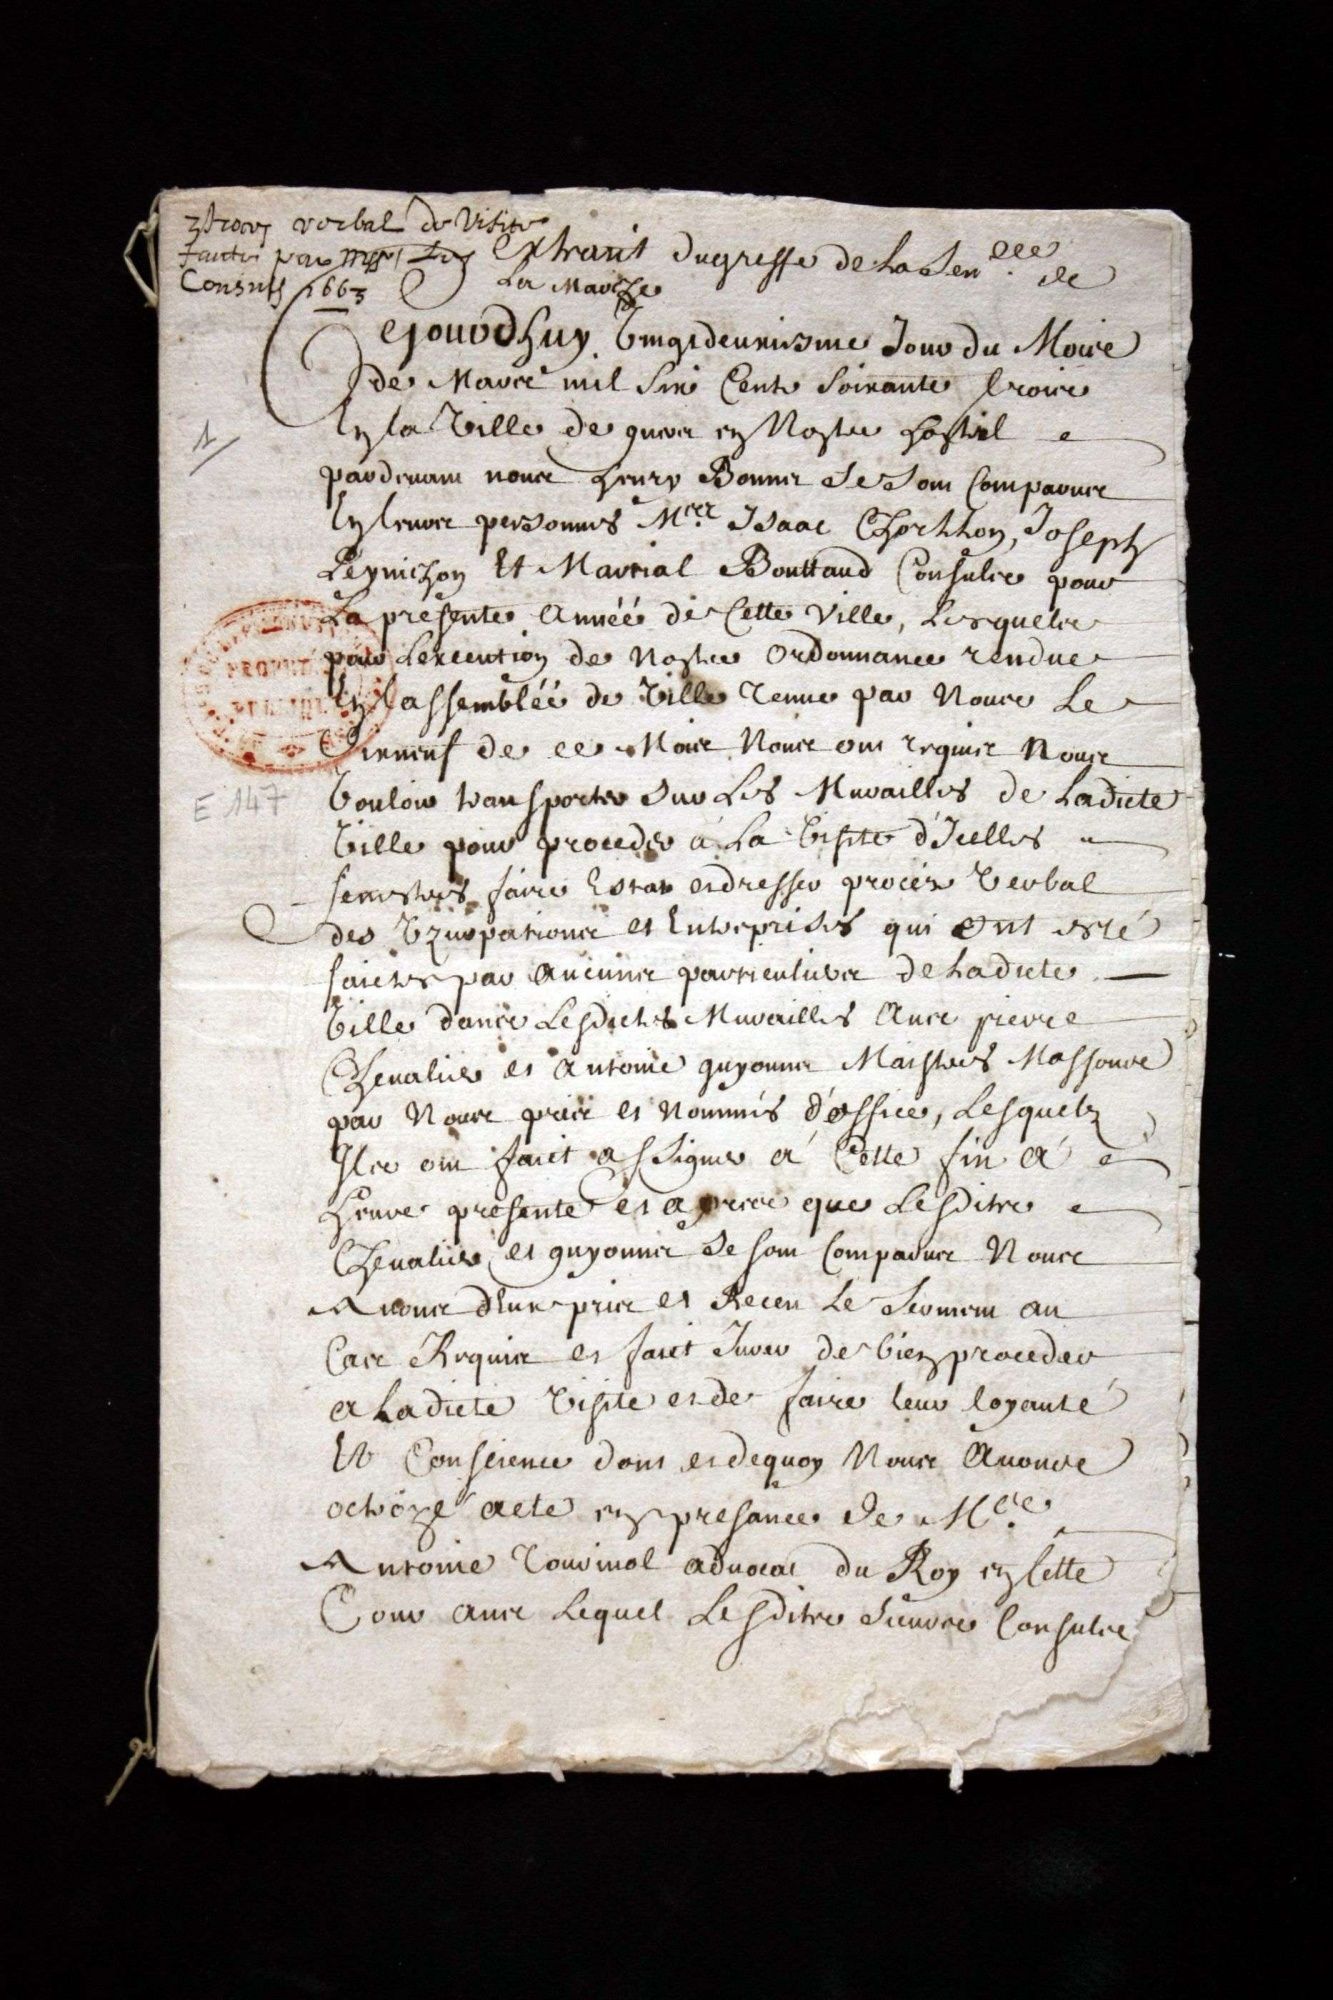 procez verbal de visite
faicte par Mrs les
Consuls 1663
Extraict du greffe de la Senee de
La Marche
Cejourdhuy Vingtdeuxiesme Jour du Mois
de Mars mil Six Cents Soixante trois
En la Ville de gueret en Nostre hostel
pardevant nous henry Bonnet Se sont Comparus
En leurs personnes Mes Isaac Chorllon, Joseph
Peynichon Et Martial Bouttaud Consulz pour
La presente Année de Cette Ville, Lesquelz
pour Lexecution de Nostre Ordonnance rendue
En lassemblée de Ville tenue par Nous Le
Dixneuf de ce Mois Nous ont requis Nous
Vouloir transporter sur Les Murailles de Ladicte
Ville pour proceder à La Visite d'Icelles
faire Estat et dresser procès Verbal
des Uzurpations et Entreprises qui ont esté
faictes par Aucuns particuliers de Ladicte
Ville dans Lesdictes Murailles Avec pierre
Chevalier et Antoine guyonnet Maistres Massons
par Nous pris et Nommés d'office, Lesquelz
Ilz ont faict assigner à Cette fin à
heure presente et apres que Lesditz
Chevalier et guyonnet Se sont Comparus Nous
Avons d'Eux pris et Receu Le Serment au
Cas Requis et faict Jurer de bien proceder
a Ladicte Visite et de faire leur loyauté
Et Conscience dont et dequoy Nous Avons
octroyé acte en presance de Me
Antoine Tournyol advocat du Roy en Cette
Cour avec Lequel Lesditz Sieurs Consulz
1
PROPRIÉTÉ
PUBLIQUE
E 147